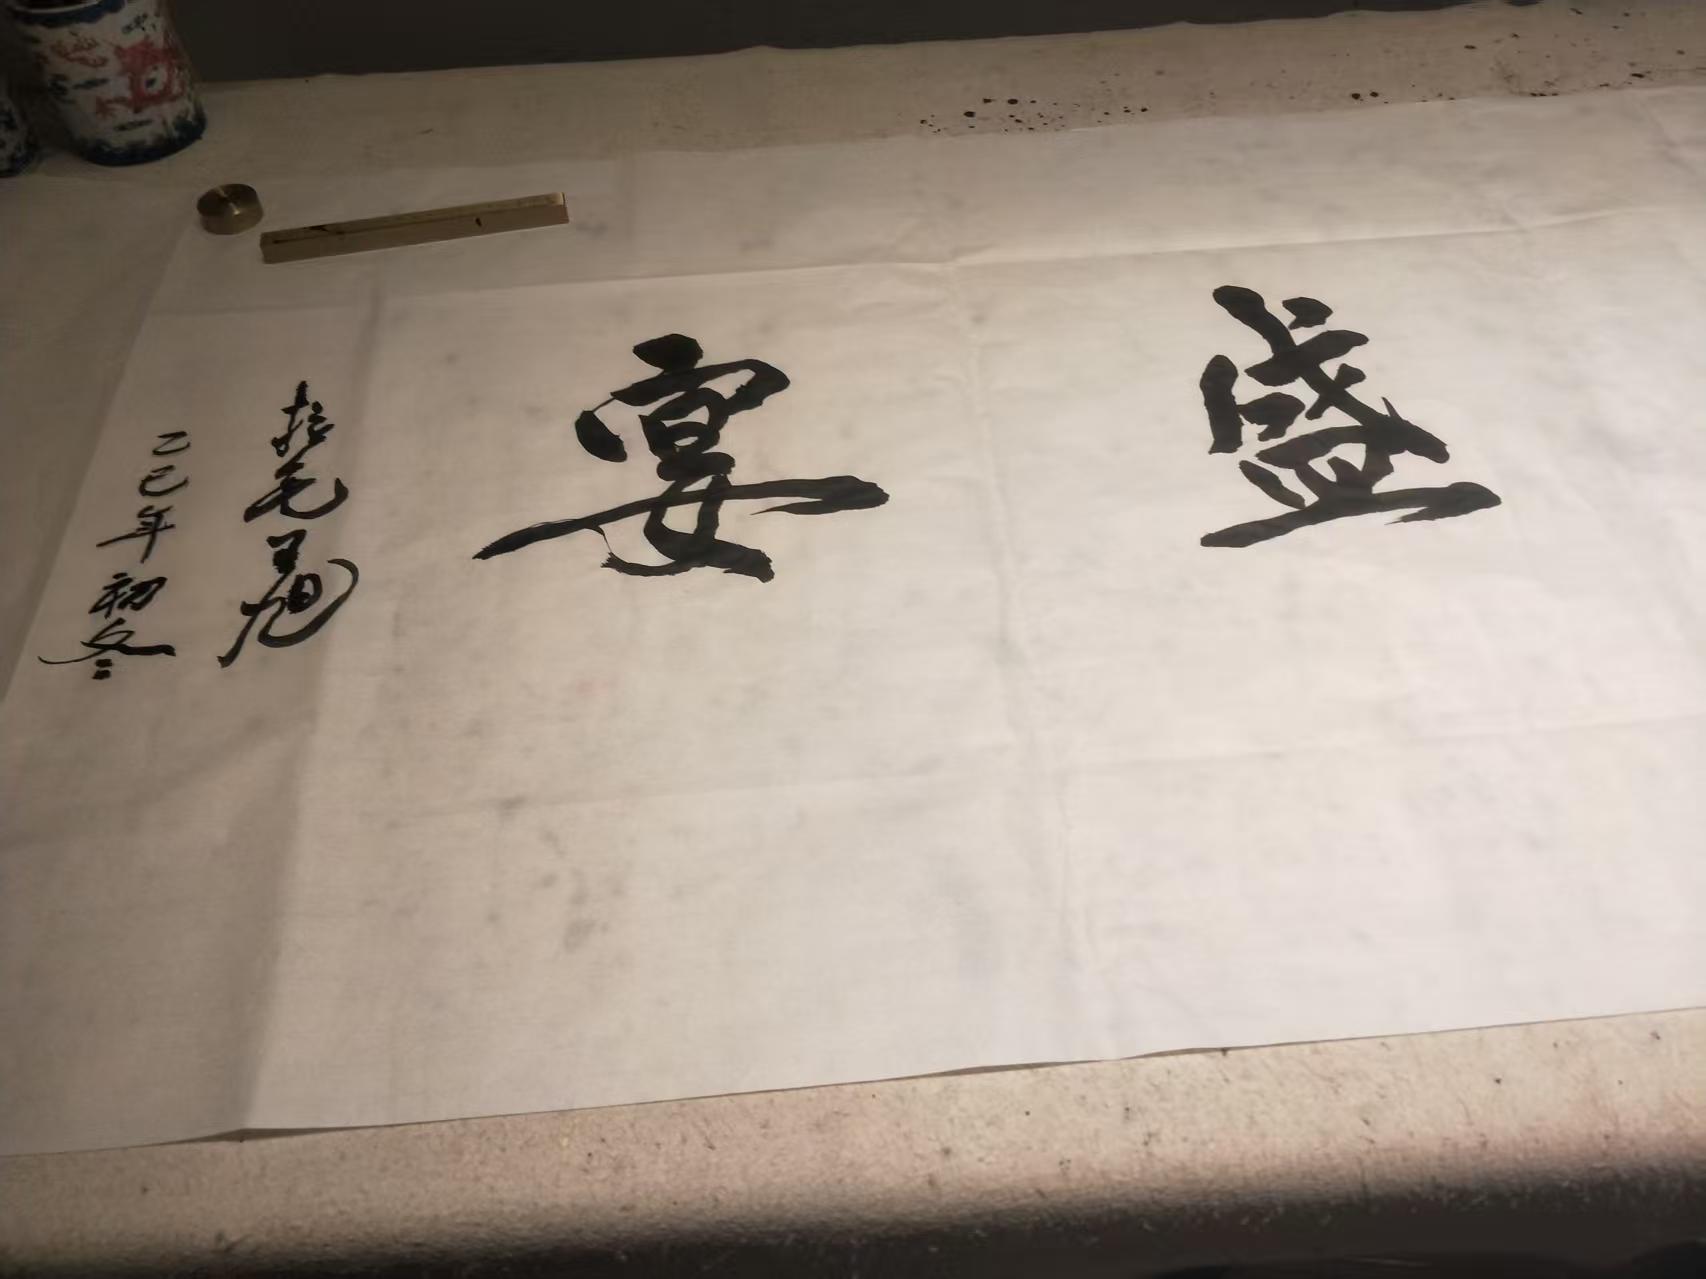 盛宴
毛王旭
乙巳年初冬